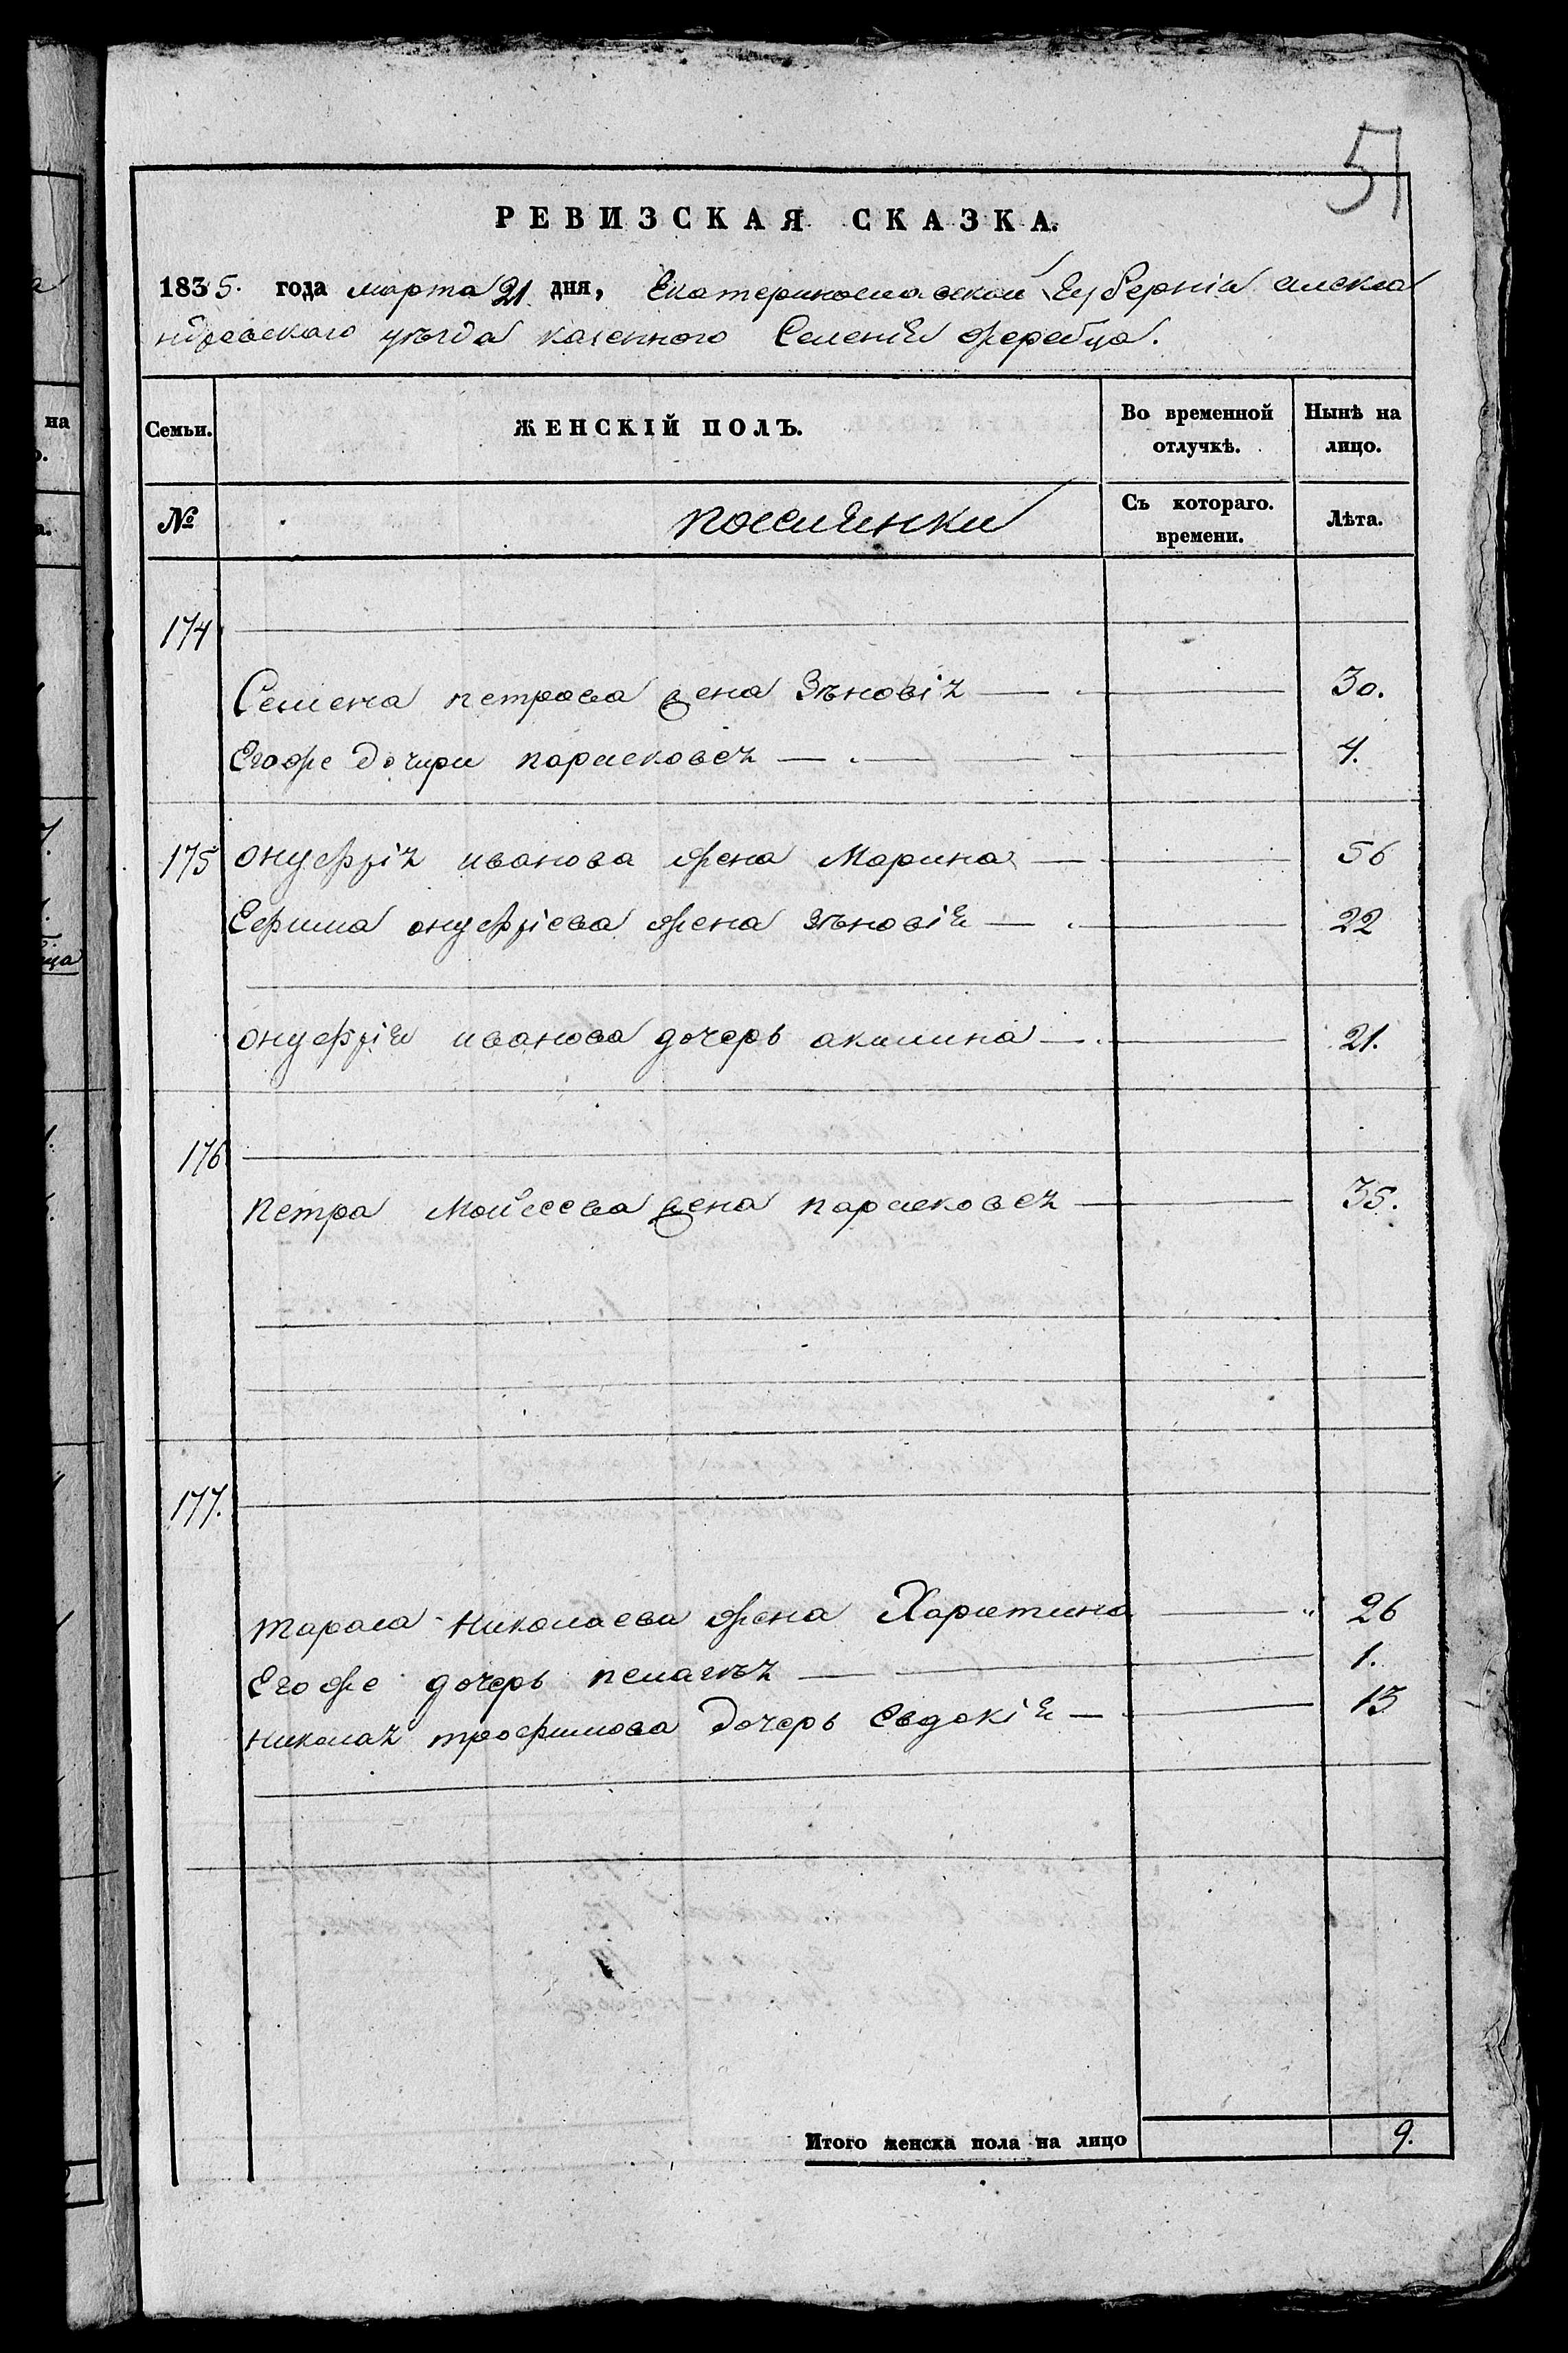 51
РЕВИЗСКАЯ СКАЗКА.
1835. года марта 21 дня, Екатеринославской Губерніи алекса
ндровского уѣзда казенного Селенія жеребца.
Семьи. ЖЕНСКІЙ ПОЛЪ. Во временной отлучкѣ. Нынѣ на лицо.
№ поселянки Съ котораго. времени. Лѣта.
174
Семена петрова жена Зѣновія 30.
Егоже дочири парасковея 4.
175 онуфрія иванова жена Марина 56
Ефима онуфріева жена зѣновія 22
онуфрія иванова дочерь акилина 21.
176
петра Мойсеева жена парасковея 35.
177.
тараса николаева жена Харитина 26
Егоже дочерь пелагѣя 1.
николая трофимова дочерь Евдокія 13
Итого женска пола на лицо 9.